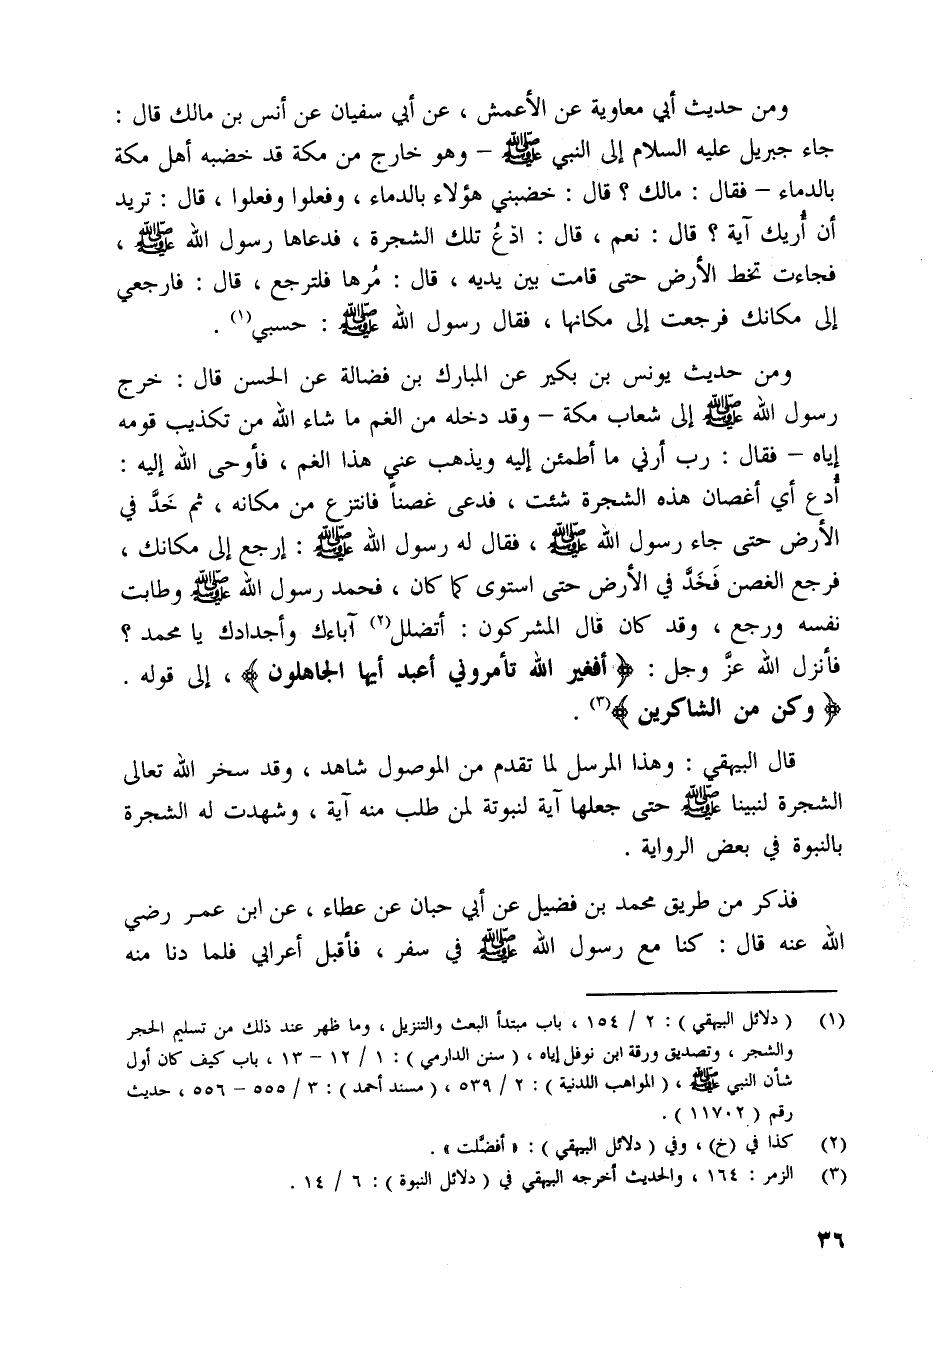 ومن حديث أبي معاوية عن الأعمش ، عن أبي سفيان عن أنس بن مالك قال :
جاء جبريل عليه السلام إلى النبي ﷺ – وهو خارج من مكة قد خضبه أهل مكة
بالدماء – فقال : مالك ؟ قال : خضبني هؤلاء بالدماء ، وفعلوا وفعلوا ، قال : تريد
أن أُريك آية ؟ قال : نعم ، قال : ادعُ تلك الشجرة ، فدعاها رسول الله ﷺ ،
فجاءت تخط الأرض حتى قامت بين يديه ، قال : مُرها فلترجع ، قال : فارجعي
إلى مكانك فرجعت إلى مكانها ، فقال رسول الله ﷺ : حسبي(١) .
ومن حديث يونس بن بكير عن المبارك بن فضالة عن الحسن قال : خرج
رسول الله ﷺ إلى شعاب مكة – وقد دخله من الغم ما شاء الله من تكذيب قومه
إياه – فقال : رب أرني ما أطمئن إليه ويذهب عني هذا الغم ، فأوحى الله إليه :
أُدع أي أغصان هذه الشجرة شئت ، فدعى غصناً فانتزع من مكانه ، ثم خَدَّ في
الأرض حتى جاء رسول الله ﷺ ، فقال له رسول الله ﷺ : إرجع إلى مكانك ،
فرجع الغصن فَخَدَّ في الأرض حتى استوى كما كان ، فحمد رسول الله ﷺ وطابت
نفسه ورجع ، وقد كان قال المشركون : أتضلل(٢) آباءك وأجدادك يا محمد ؟
فأنزل الله عزَّ وجل : ﴿ أفغير الله تأمروني أعبد أيها الجاهلون ﴾ ، إلى قوله .
﴿ وكن من الشاكرين ﴾(٣) .
قال البيهقي : وهذا المرسل لما تقدم من الموصول شاهد ، وقد سخر الله تعالى
الشجرة لنبينا ﷺ حتى جعلها آية لنبوتة لمن طلب منه آية ، وشهدت له الشجرة
بالنبوة في بعض الرواية .
فذكر من طريق محمد بن فضيل عن أبي حبان عن عطاء ، عن ابن عمر رضي
الله عنه قال : كنا مع رسول الله ﷺ في سفر ، فأقبل أعرابي فلما دنا منه
(١) ( دلائل البيهقي ) : ٢ / ١٥٤ ، باب مبتدأ البعث والتنزيل ، وما ظهر عند ذلك من تسليم الحجر
والشجر ، وتصديق ورقة ابن نوفل إياه ، ( سنن الدارمي ) : ١ / ١٢ – ١٣ ، باب كيف كان أول
شأن النبي ﷺ ، ( المواهب اللدنية ) : ٢ / ٥٣٩ ، ( مسند أحمد ) : ٣ / ٥٥٥ – ٥٥٦ ، حديث
رقم ( ١١٧٠٢ ) .
(٢) كذا في (خ) ، وفي ( دلائل البيهقي ) : « أفضَّلت » .
(٣) الزمر : ١٦٤ ، والحديث أخرجه البيهقي في ( دلائل النبوة ) : ٦ / ١٤ .
٣٦